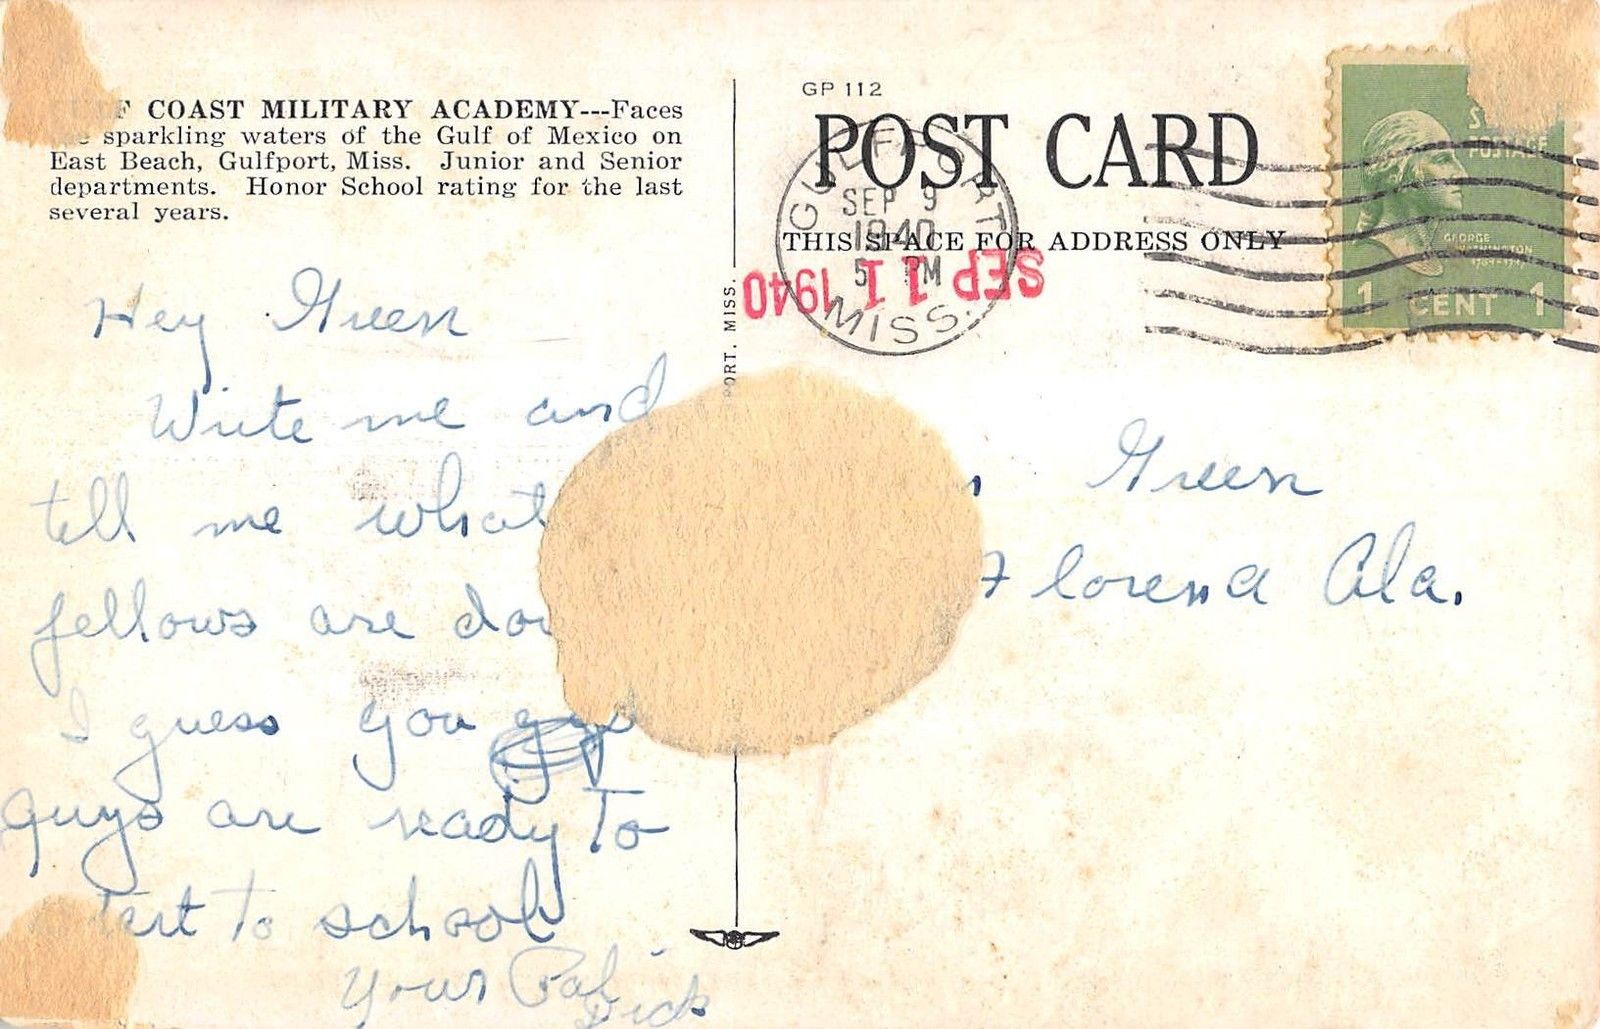 COAST MILITARY ACADEMY---Faces
sparkling waters of the Gulf of Mexico on
East Beach, Gulfport, Miss. Junior and Senior
departments. Honor School rating for the last
several years.
Hey Green
Write me and
tell me what
fellows are
I guess you
guys are ready to
to school
Your Pal
Dick
MISS.
GP 112
POST CARD
THIS SPACE FOR ADDRESS ONLY
GULFPORT
SEP 9
1940
5 PM
MISS.
SEP 11 1940
POSTAGE
GEORGE
WASHINGTON
1 CENT 1
Green
Florena Ala.